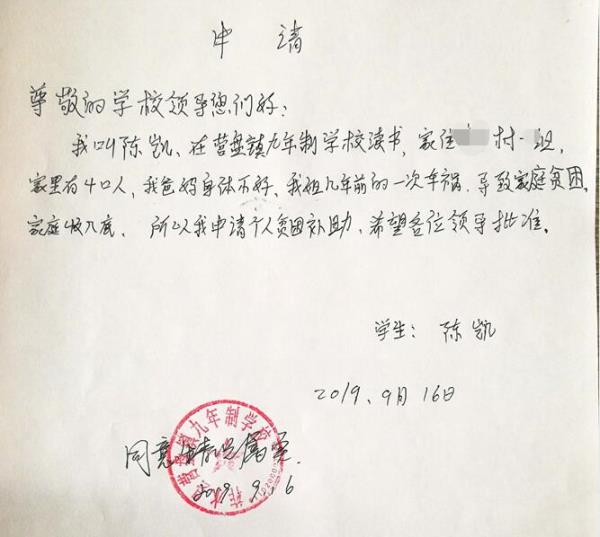 申 请
尊敬的学校领导您们好：
我叫陈凯、在营盘镇九年制学校读书，家住 村一组，
家里有4口人，我爸妈身体不好、我祖几年前的一次车祸、导致家庭贫困，
家庭收入底、所以我申请个人贫困补助、希望各位领导批准。
学生：陈凯
2019、9月16日
营盘镇九年制学校
同意 情况属实.
2019.9. 6